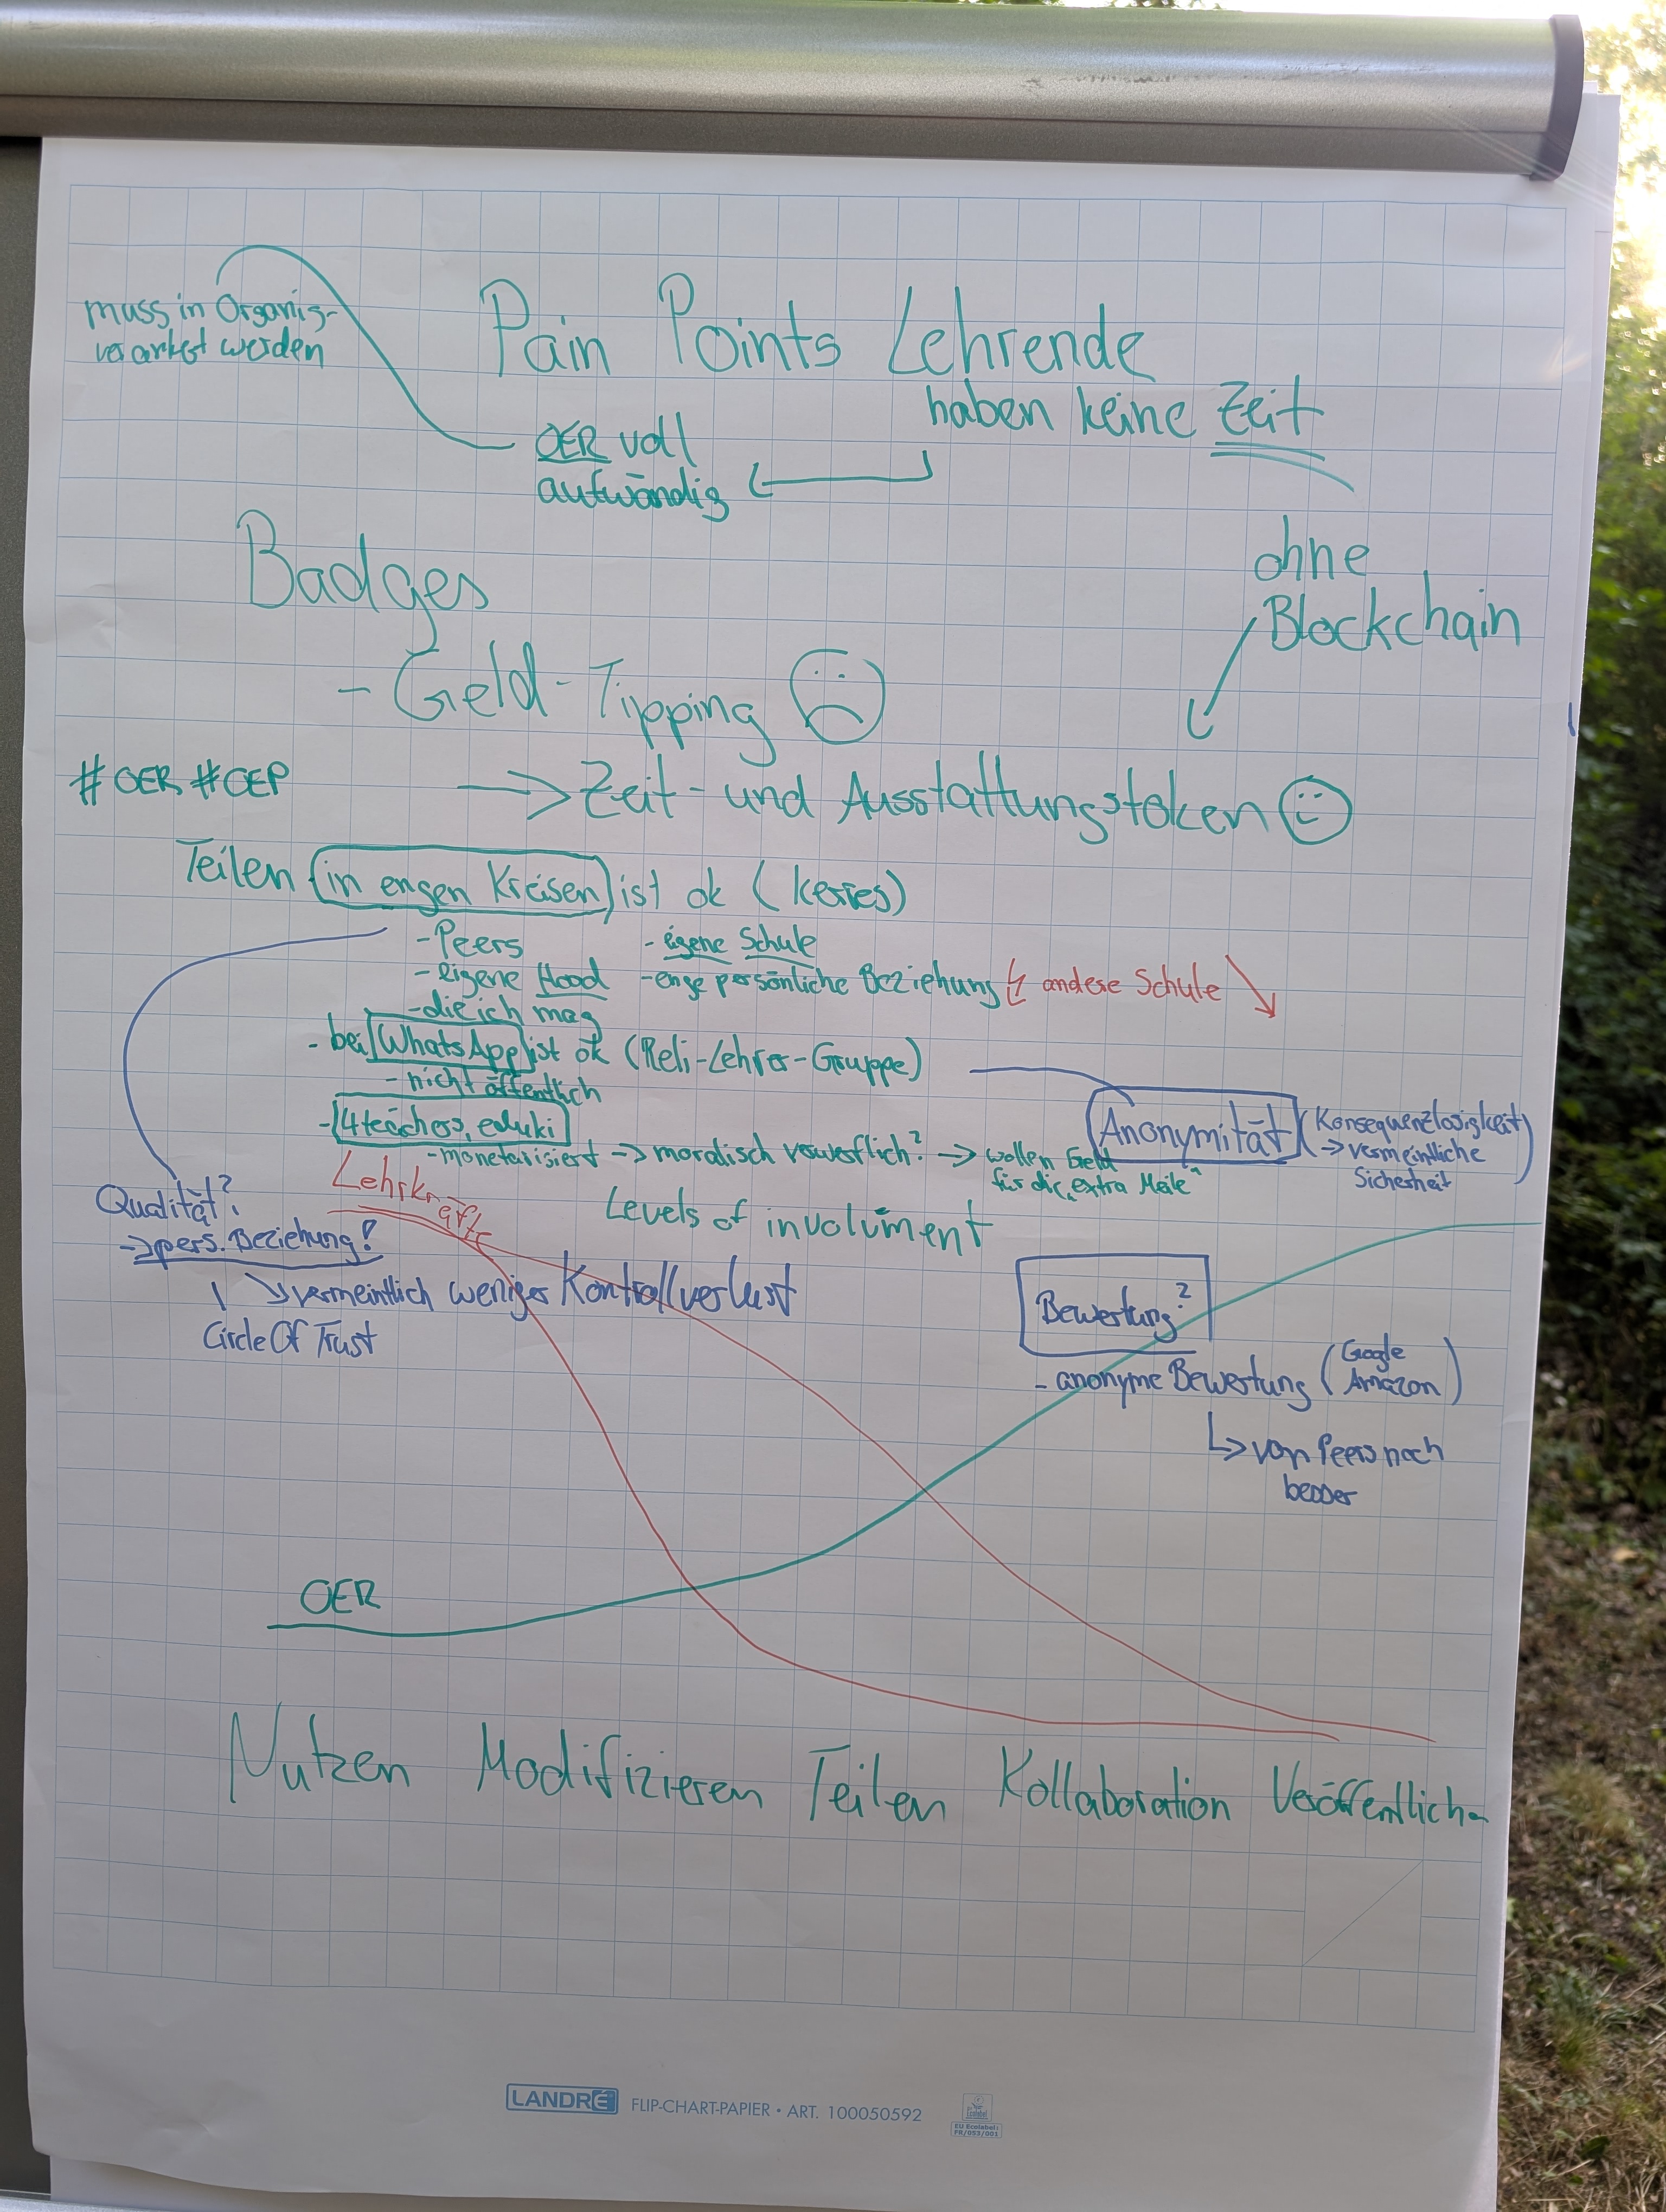 muss in Organis-
verankert werden
Pain Points Lehrende
haben keine Zeit
OER voll
aufwändig
ohne
Blockchain
Badges
- Geld-Tipping
#OER #OEP
→ Zeit- und Ausstattungstoken
Teilen (in engen Kreisen) ist ok (Kerres)
- Peers
- eigene Hood
- die ich mag
- eigene Schule
- enge persönliche Beziehung
andere Schule
- bei WhatsApp ist ok (Reli-Lehrer-Gruppe)
- nicht öffentlich
- 4teachers, eduki
- monetarisiert → moralisch verwerflich? → wollen Geld
für die „extra Meile"
Anonymität
(Konsequenzlosigkeit)
→ vermeintliche
Sicherheit
Lehrkräfte
Qualität?
→ pers. Beziehung!
↘ vermeintlich weniger Kontrollverlust
Circle Of Trust
Levels of involvment
Bewertung?
- anonyme Bewertung (Google
Amazon)
↳ von Peers noch
besser
OER
Nutzen Modifizieren Teilen Kollaboration Veröffentlichen
LANDRÉ FLIP-CHART-PAPIER • ART. 100050592
EU Ecolabel:
FR/053/001